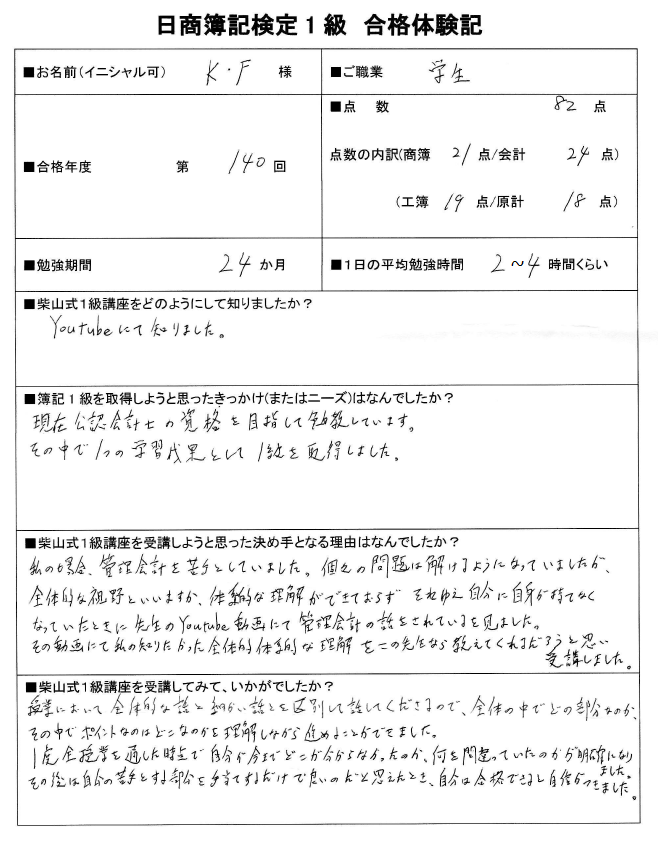 日商簿記検定１級 合格体験記
■お名前(イニシャル可) K・F 様
■ご職業 学生
■合格年度 第 140 回
■点 数 82 点
点数の内訳(商簿 21 点/会計 24 点)
(工簿 19 点/原計 18 点)
■勉強期間 24 か月
■１日の平均勉強時間 2~4 時間くらい
■柴山式１級講座をどのようにして知りましたか？
Youtubeにて知りました。
■簿記１級を取得しようと思ったきっかけ(またはニーズ)はなんでしたか？
現在公認会計士の資格を目指して勉強しています。
その中で1つの学習成果として1級を取得しました。
■柴山式１級講座を受講しようと思った決め手となる理由はなんでしたか？
私の場合、管理会計を苦手としていました。個々の問題は解けるようになっていましたが、
全体的な視野といいますか、体系的な理解ができておらず それゆえ自分に自身が持てなく
なっていたときに先生のYoutube動画にて管理会計の話をされているを見ました。
その動画にて私の知りたかった全体的体系的な理解をこの先生なら教えてくれるだろうと思い
受講しました。
■柴山式１級講座を受講してみて、いかがでしたか？
授業において全体的な話と細かい話とを区別して話してくださるので、全体の中でどの部分なのか、
その中でポイントなのはどこなのかを理解しながら進めることができました。
1度全授業を通した時点で自分が今までどこが分からなかったのか、何を間違っていたのかが明確になり
ました。
その後は自分の苦手とする部分を手当てするだけで良いのだと思えたとき、自分は合格できると自信がつきました。